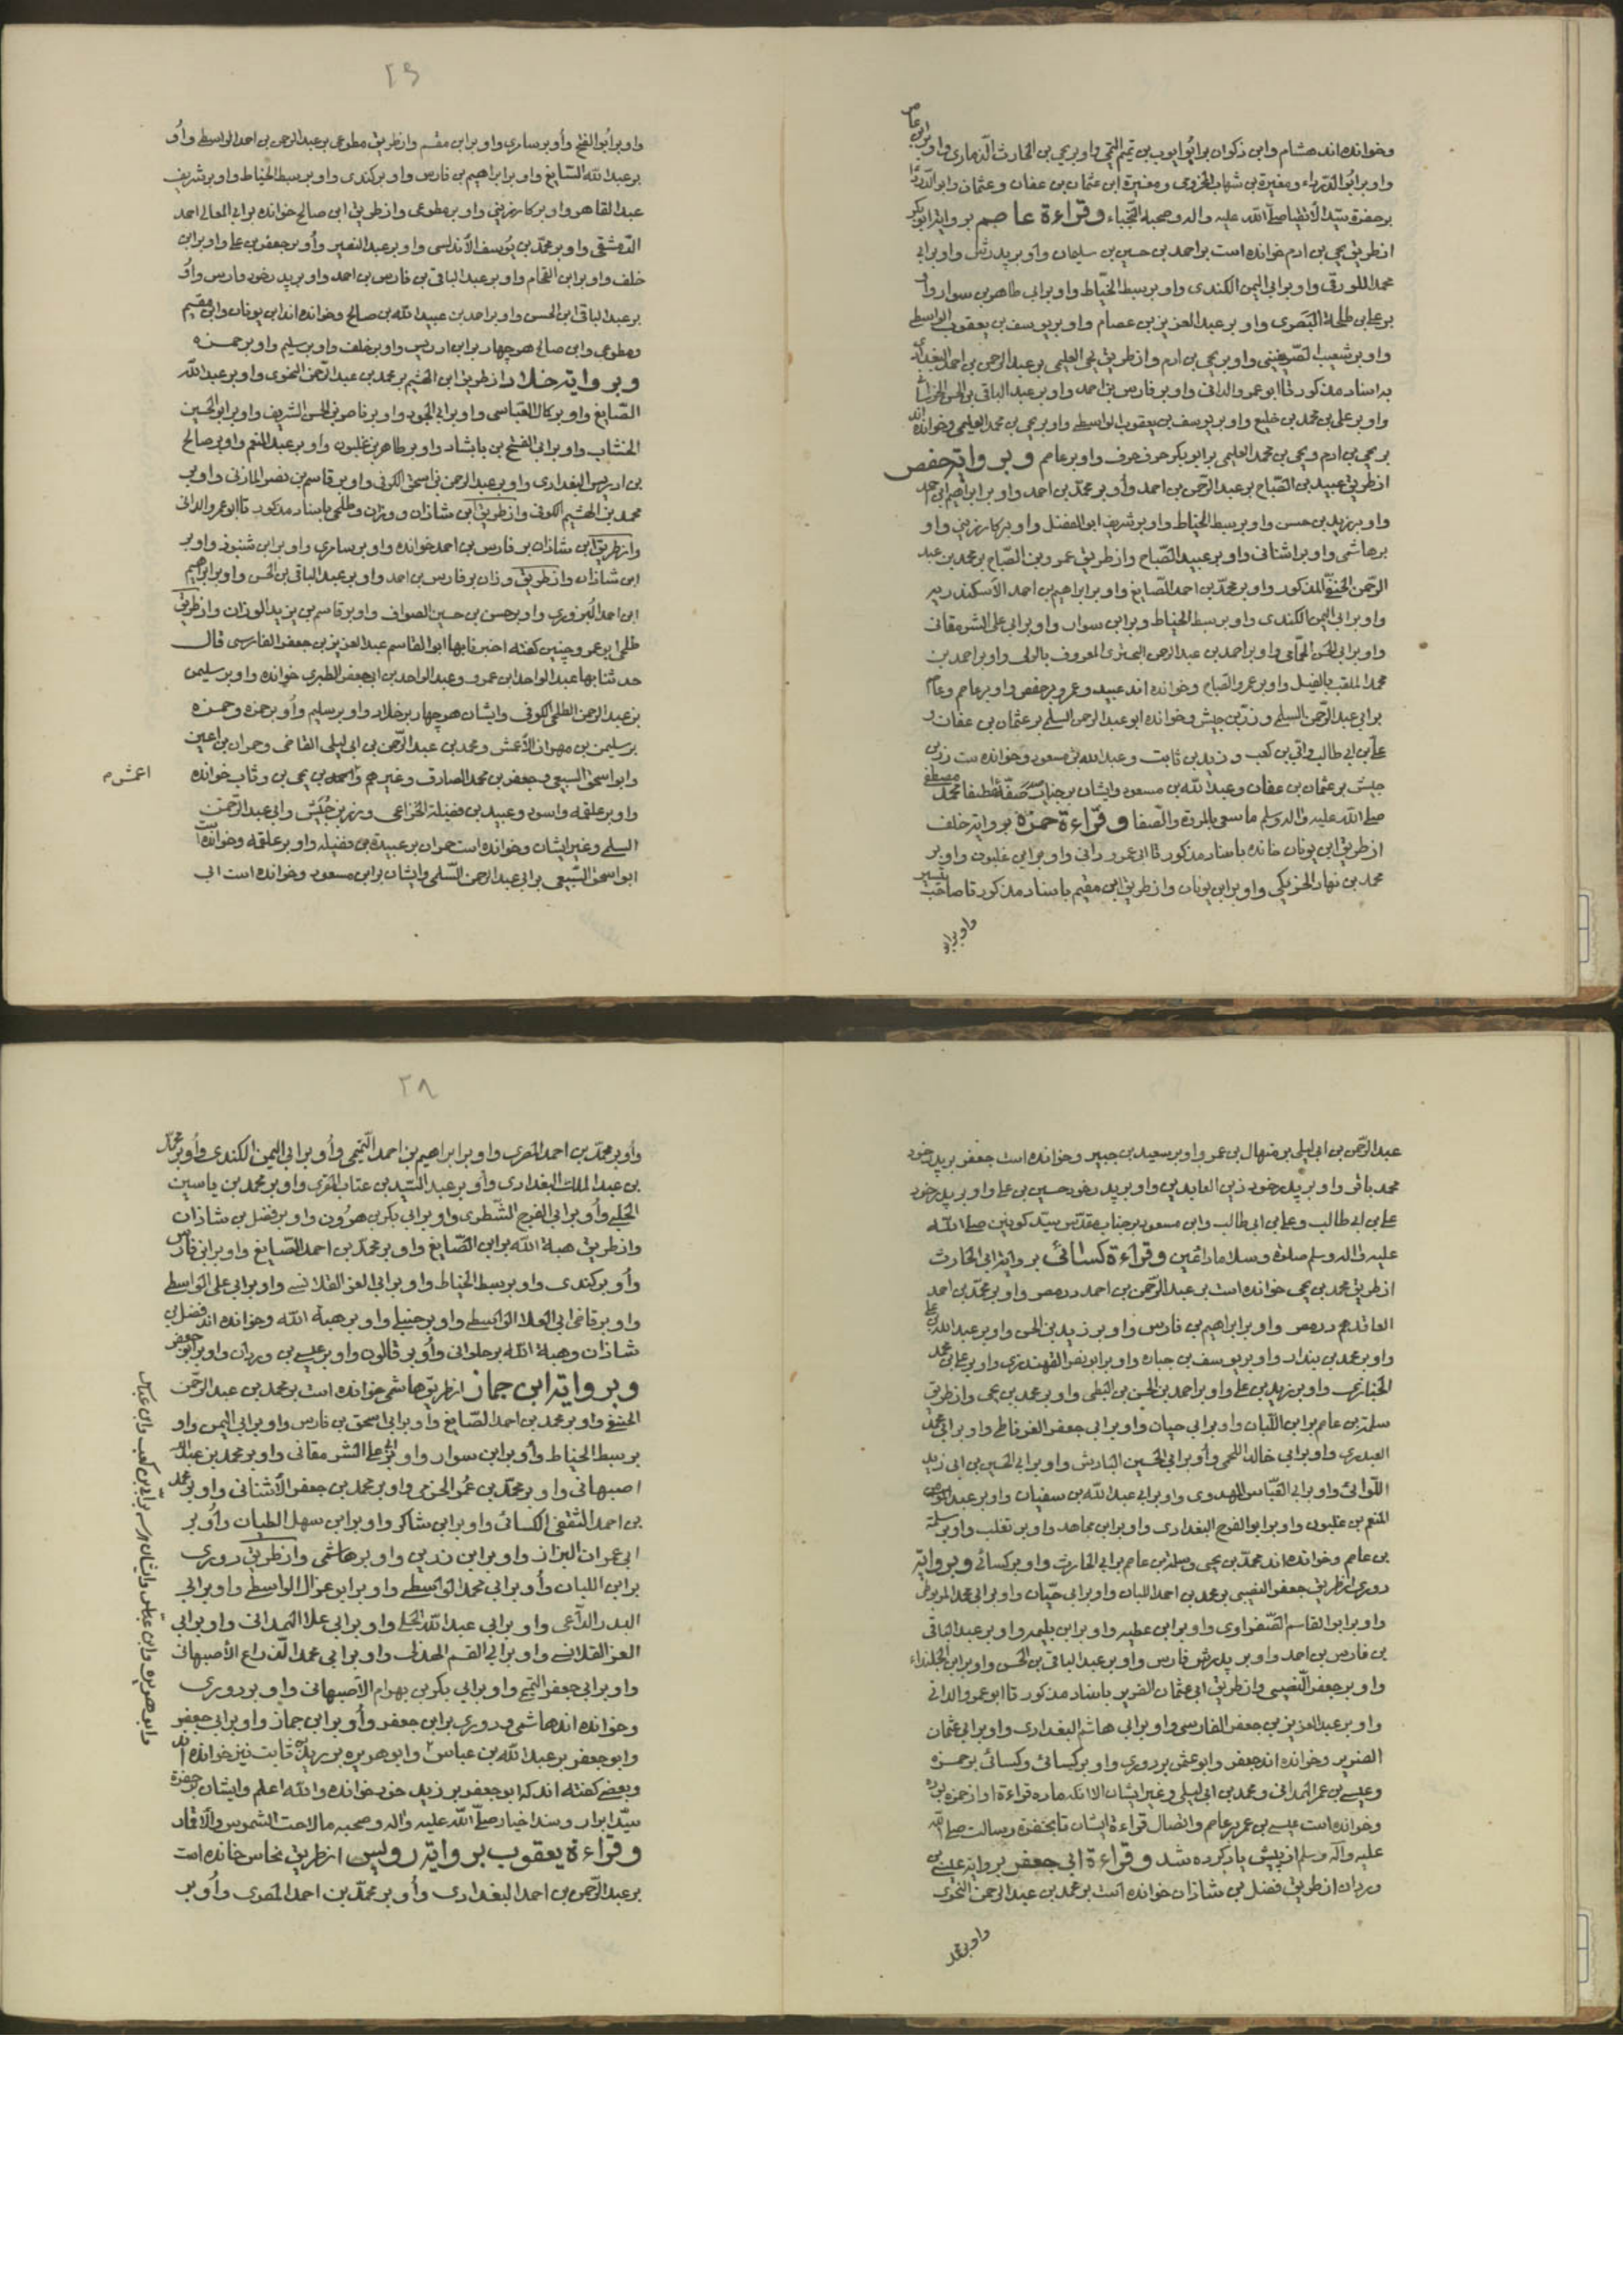 وخوانده اند هشام وابن ذکوان بر ایوب بن تمیم التمیمی واو بر یحیی بن الحارث الذماری واو بر ابن عامر
واو بر ابو الدرداء ومغیرة بن شهاب المخزومی ومغیرة ابن عثمان بن عفان وعثمان وابو الدردا
بر حضرة سید الانبیا صلی الله علیه واله وصحبه النجباء وقراءة عاصم بروایة ابوبکر
از طریق یحیی بن ادم خوانده است بر احمد بن حسین بن سلیمان واو بر پدرش واو بر ابی
محمد اللورقی واو بر ابی الیمن الکندی واو بر سبط الخیاط واو بر ابی طاهر بن سوار واو
بر علی بن طلحة البصری واو بر عبد العزیز بن عصام واو بر یوسف بن یعقوب الواسطی
واو بر شعیب الصریفینی واو بر یحیی بن ادم واز طریق یحیی العلیمی بر عبد الرحمن بن احمد البغدادی
باسناد مذکور تا ابو عمرو الدانی واو بر فارس بن احمد واو بر عبد الباقی بن الحسن الخراسانی
واو بر علی بن محمد بن خلیع واو بر یوسف بن یعقوب الواسطی واو بر یحیی بن محمد العلیمی وخوانده اند
یحیی بن ادم ویحیی بن محمد العلیمی بر ابو بکر حرف حرف واو بر عاصم وبروایة حفص
از طریق عبید بن الصباح بر عبد الرحمن بن احمد واو بر محمد بن احمد واو بر ابراهیم بن احمد
واو بر زید بن حسن واو بر سبط الخیاط واو بر شریف ابو الفضل واو بر کارزینی واو
بر هاشمی واو بر اشنانی واو بر عبید الصباح واز طریق عمرو بن الصباح بر محمد بن عبد
الرحمن الحنفی المذکور واو بر محمد بن احمد الصایغ واو بر ابراهیم بن احمد الاسکندریه
واو بر ابی الیمن الکندی واو بر سبط الخیاط وبر ابن سوار واو بر ابی علی الشرمقانی
واو بر ابی الحسن الحمامی واو بر احمد بن عبد الرحمن البختری المعروف بالولی واو بر احمد بن
محمد الملقب بالفیل واو بر عمرو الصباح وخوانده اند عبید وعمرو بر حفص واو بر عاصم وعاصم
بر ابی عبد الرحمن السلمی وزر بن حبیش وخوانده ابو عبد الرحمن السلمی بر عثمان بن عفان و
علی بن ابی طالب وابی بن کعب وزید بن ثابت وعبد الله بن مسعود وخوانده است زر بن
حبیش بر عثمان بن عفان وعبد الله بن مسعود وایشان بر جناب محمد مصطفی
صلی الله علیه واله وسلم ما سعی بالمروة والصفا وقراءة حمزة بروایة خلف
از طریق ابن بویان خانده باسناد مذکور تا ابی عمرو دانی واو بر ابن غلبون واو بر
محمد بن نهار الحرتکی واو بر ابن بویان واز طریق ابن مقسم باسناد مذکور تا صاحب تیسیر
واو بر ابو
۲۹
واو بر ابو الفتح واو بر سامری واو بر ابن مقسم واز طریق مطوعی بر عبد الرحمن بن احمد الواسطی واو
بر عبد الله الصایغ واو بر ابراهیم بن فارس واو بر کندی واو بر سبط الخیاط واو بر شریف
عبد القاهر واو بر کارزینی واو بر مطوعی واز طریق ابن صالح خوانده بر ابی المعالی احمد
الدمشقی واو بر محمد بن یوسف الاندلسی واو بر عبد النصیر واو بر جعفر بن علی واو بر ابن
خلف واو بر ابن الفحام واو بر عبد الباقی بن فارس بن احمد واو بر پدر خود فارس واو
بر عبد الباقی ابن الحسن واو بر احمد بن عبید الله بن صالح وخوانده اند ابن بویان وابن مقسم
ومطوعی وابن صالح هر چهار بر ابن ادریس واو بر خلف واو بر سلیم واو بر حمزه
وبروایة خلاد از طریق ابن الهثیم بر محمد بن عبد الرحمن النحوی واو بر عبد الله
الصایغ واو بر کمال العباسی واو بر ابی الجود واو بر ناصر بن الحسن الشریف واو بر ابو الحسین
الخشاب واو بر ابی الفتح بن بابشاد واو بر طاهر بن غلبون واو بر عبد المنعم واو بر صالح
بن ادریس البغدادی واو بر عبد الرحمن بن اسحق الکوفی واو بر قاسم بن نصر المازنی واو بر
محمد بن الهثیم الکوفی واز طریق ابن شاذان ووزان وطلحی باسناد مذکور تا ابو عمرو الدانی
واز طریق ابن شاذان بر فارس بن احمد خوانده واو بر سامری واو بر ابن شنبوذ واو بر
ابن شاذان واز طریق وزان بر فارس بن احمد واو بر عبد الباقی بن الحسن واو بر ابراهیم
ابن احمد البزوری واو بر حسن بن حسین الصواف واو بر قاسم بن یزید الوزان واز طریق
طلحی ابو عمرو چنین کفته اخبرنا بها ابو القاسم عبد العزیز بن جعفر الفارسی قال
حدثنا بها عبد الواحد ابن عمرو وعبد الواحد بن ابی جعفر الطبری خوانده واو بر سلیمن
بن عبد الرحمن الطلحی الکوفی وایشان هر چهار بر خلاد واو بر سلیم واو بر حمزه وحمزه
بر سلیمن بن مهران الاعمش ومحمد بن عبد الرحمن بن ابی لیلی القاضی وحمران بن اعین
وابو اسحق السبیعی وجعفر بن محمد الصادق وغیرهم واعمش بر یحیی بن وثاب خوانده
اعمش م
واو بر علقمه واسود وعبید بن فضیلة الخزاعی وزر بن حبیش وابی عبد الرحمن
السلمی وغیر ایشان وخوانده است حمران بر عبیدة بن فضیله واو بر علقمه وخوانده است
ابو اسحق السبیعی بر ابی عبد الرحمن السلمی وایشان بر ابن مسعود وخوانده است ابی
عبد الرحمن بن ابی لیلی بر منهال بن عمر واو بر سعید بن جبیر وخوانده است جعفر بر پدر خود
محمد باقر واو بر پدر خود زین العابدین واو بر پدر خود حسین بن علی واو بر پدر خود
علی بن ابی طالب وعلی بن ابی طالب وابن مسعود بر جناب مقدس سید کونین صلی الله
علیه واله وسلم صلوة وسلاما دائمین وقراءة کسائی بروایة ابی الحارث
از طریق محمد بن یحیی خوانده است بر عبد الرحمن بن احمد در مصر واو بر محمد بن احمد
المعدل هم در مصر واو بر ابراهیم بن فارس واو بر زید بن الحسن واو بر عبد الله بن علی
واو بر محمد بن بندار واو بر یوسف بن جباره واو بر ابو نصر القهندزی واو بر علی بن محمد
الخبازی واو بر زید بن علی واو بر احمد بن الحسن بن البطی واو بر محمد بن یحیی واز طریق
سلمة بن عاصم بر ابن اللبان واو بر ابی حیان واو بر ابی جعفر الغرناطی واو بر ابی محمد
العبدری واو بر ابی خالد اللخمی واو بر ابی الحسین الباذش واو بر ابی الحسین بن ابی زید
اللواتی واو بر ابی العباس المهدوی واو بر ابی عبد الله بن سفیان واو بر عبد
المنعم بن غلبون واو بر ابو الفرج البغدادی واو بر ابن مجاهد واو بر ثعلب واو بر سلمة
بن عاصم وخوانده اند محمد بن یحیی وسلمة بن عاصم بر ابی الحارث واو بر کسائی وبروایة
دوری از طریق جعفر النصیبی بر محمد بن احمد اللبان واو بر ابی حیان واو بر ابی محمد المربوطی
واو بر ابو القاسم الصفراوی واو بر ابن عطیه واو بر ابن بلیمه واو بر عبد الباقی
بن فارس بن احمد واو بر پدرش فارس واو بر عبد الباقی بن الحسن واو بر ابن الجلنداء
واو بر جعفر النصیبی واز طریق ابی عثمان الضریر باسناد مذکور تا ابو عمرو الدانی
واو بر عبد العزیز بن جعفر الفارسی واو بر ابی هاشم البغدادی واو بر ابی عثمان
الضریر وخوانده اند جعفر وابو عثمن بر دوری واو بر کسائی وکسائی بر حمزه
وعیسی بن عمر الهمدانی ومحمد بن ابی لیلی وغیر ایشان الا انکه ماده قراءة او از حمزه بوده
وخوانده است عیسی بن عمر بر عاصم واتصال قراءة ایشان تا بحضرة رسالت صلی الله
علیه وآله وسلم از پیش یاد کرده شد وقراءة ابی جعفر بروایة عیسی بن
وردان از طریق فضل بن شاذان خوانده است بر محمد بن عبد الرحمن النحوی
واو بر محمد
۲۸
واو بر محمد بن احمد المقری واو بر ابراهیم بن احمد التمیمی واو بر ابی الیمن الکندی واو بر محمد
بن عبد الملک البغدادی واو بر عبد السید بن عتاب المقری واو بر محمد بن یاسین
الحلبی واو بر ابی الفرج الشطوی واو بر ابی بکر بن هرون واو بر فضل بن شاذان
واز طریق هبة الله بر ابن الصایغ واو بر محمد بن احمد الصایغ واو بر ابن فارس
واو بر کندی واو بر سبط الخیاط واو بر ابی العز القلانسی واو بر ابی علی الواسطی
واو بر قاضی ابی العلا الواسطی واو بر حنبلی واو بر هبة الله وخوانده اند فضل بن
شاذان وهبة الله بر حلوانی واو بر قالون واو بر عیسی بن وردان واو بر ابو جعفر
وبروایة ابن جماز از طریق هاشمی خوانده است بر محمد بن عبد الرحمن
الحنفی واو بر محمد بن احمد الصایغ واو بر ابی اسحق بن فارس واو بر ابی الیمن واو
بر سبط الخیاط واو بر ابن سوار واو بر ابی علی الشرمقانی واو بر محمد بن عبد الله
اصبهانی واو بر محمد بن عمر الخرقی واو بر محمد بن جعفر الاشنانی واو بر محمد
بن احمد الثقفی الکسائی واو بر ابن شاکر واو بر ابن سهل الطیان واو بر
ابی عمران البزاز واو بر ابن رزین واو بر هاشمی واز طریق دوری
بر ابن اللبان واو بر ابی محمد الواسطی واو بر ابو غزال الواسطی واو بر ابی
البدر الداعی واو بر ابی عبد الله الحلی واو بر ابی علا الهمدانی واو بر ابی
العز القلانسی واو بر ابی القسم الهذلی واو بر ابی محمد الذراع الاصبهانی
واو بر ابی جعفر التمیمی واو بر ابی بکر بن بهرام الاصبهانی واو بر دوری
وخوانده اند هاشمی ودوری بر ابن جعفر واو بر ابن جماز واو بر ابی جعفر
وابو جعفر بر عبد الله بن عباس وابو هریره بر زید بن ثابت نیز خوانده اند
وبعضی کفته اند که ابو جعفر بر زید خود خوانده والله اعلم وایشان بر حضرة
سید ابرار وسند اخیار صلی الله علیه واله وصحبه ما لاحت الشموس والاقمار
وقراءة یعقوب بروایة رویس از طریق نخاس خانده است
بر عبد الرحمن بن احمد البغدادی واو بر محمد بن احمد المصری واو بر
وابو هریره وابن عباس وایشان هر سه بر ابی بن کعب وابن عباس